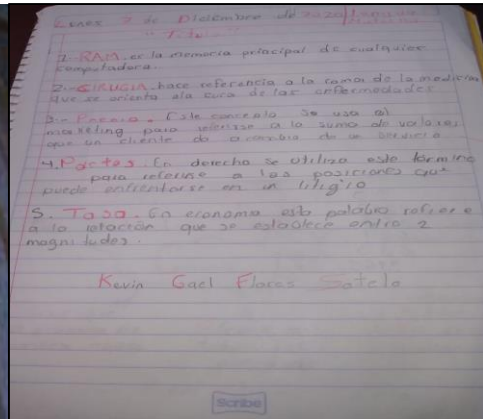 Lunes 7 de Diciembre de 2020
1.-RAM. es la memoria principal de cualquier
computadora.
2.-CIRUGIA. hace referencia a la rama de la medicina
que se orienta ala cura de las enfermedades
3.- Este concepto se usa
marketing para referirse a la suma de valores
que un cliente da a cambio de un servicio
4. En derecho se utiliza este termino
para referirse a las posiciones que
puede enfrentarse en un litigio
5. Tasa. En economia esta palabra refiere
a la relación que se establece entre 2
magnitudes.
Kevin Gael Flores Sotelo
Scribe